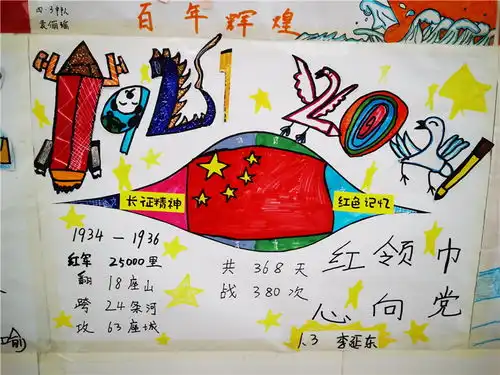 四.3中队
百年辉煌
1921
2021
长征精神
红色记忆
1934—1936
红军 25000里
翻 18座山
跨 24条河
攻 63座城
共 368天
战 380次
红领巾
心向党
人3 李延东